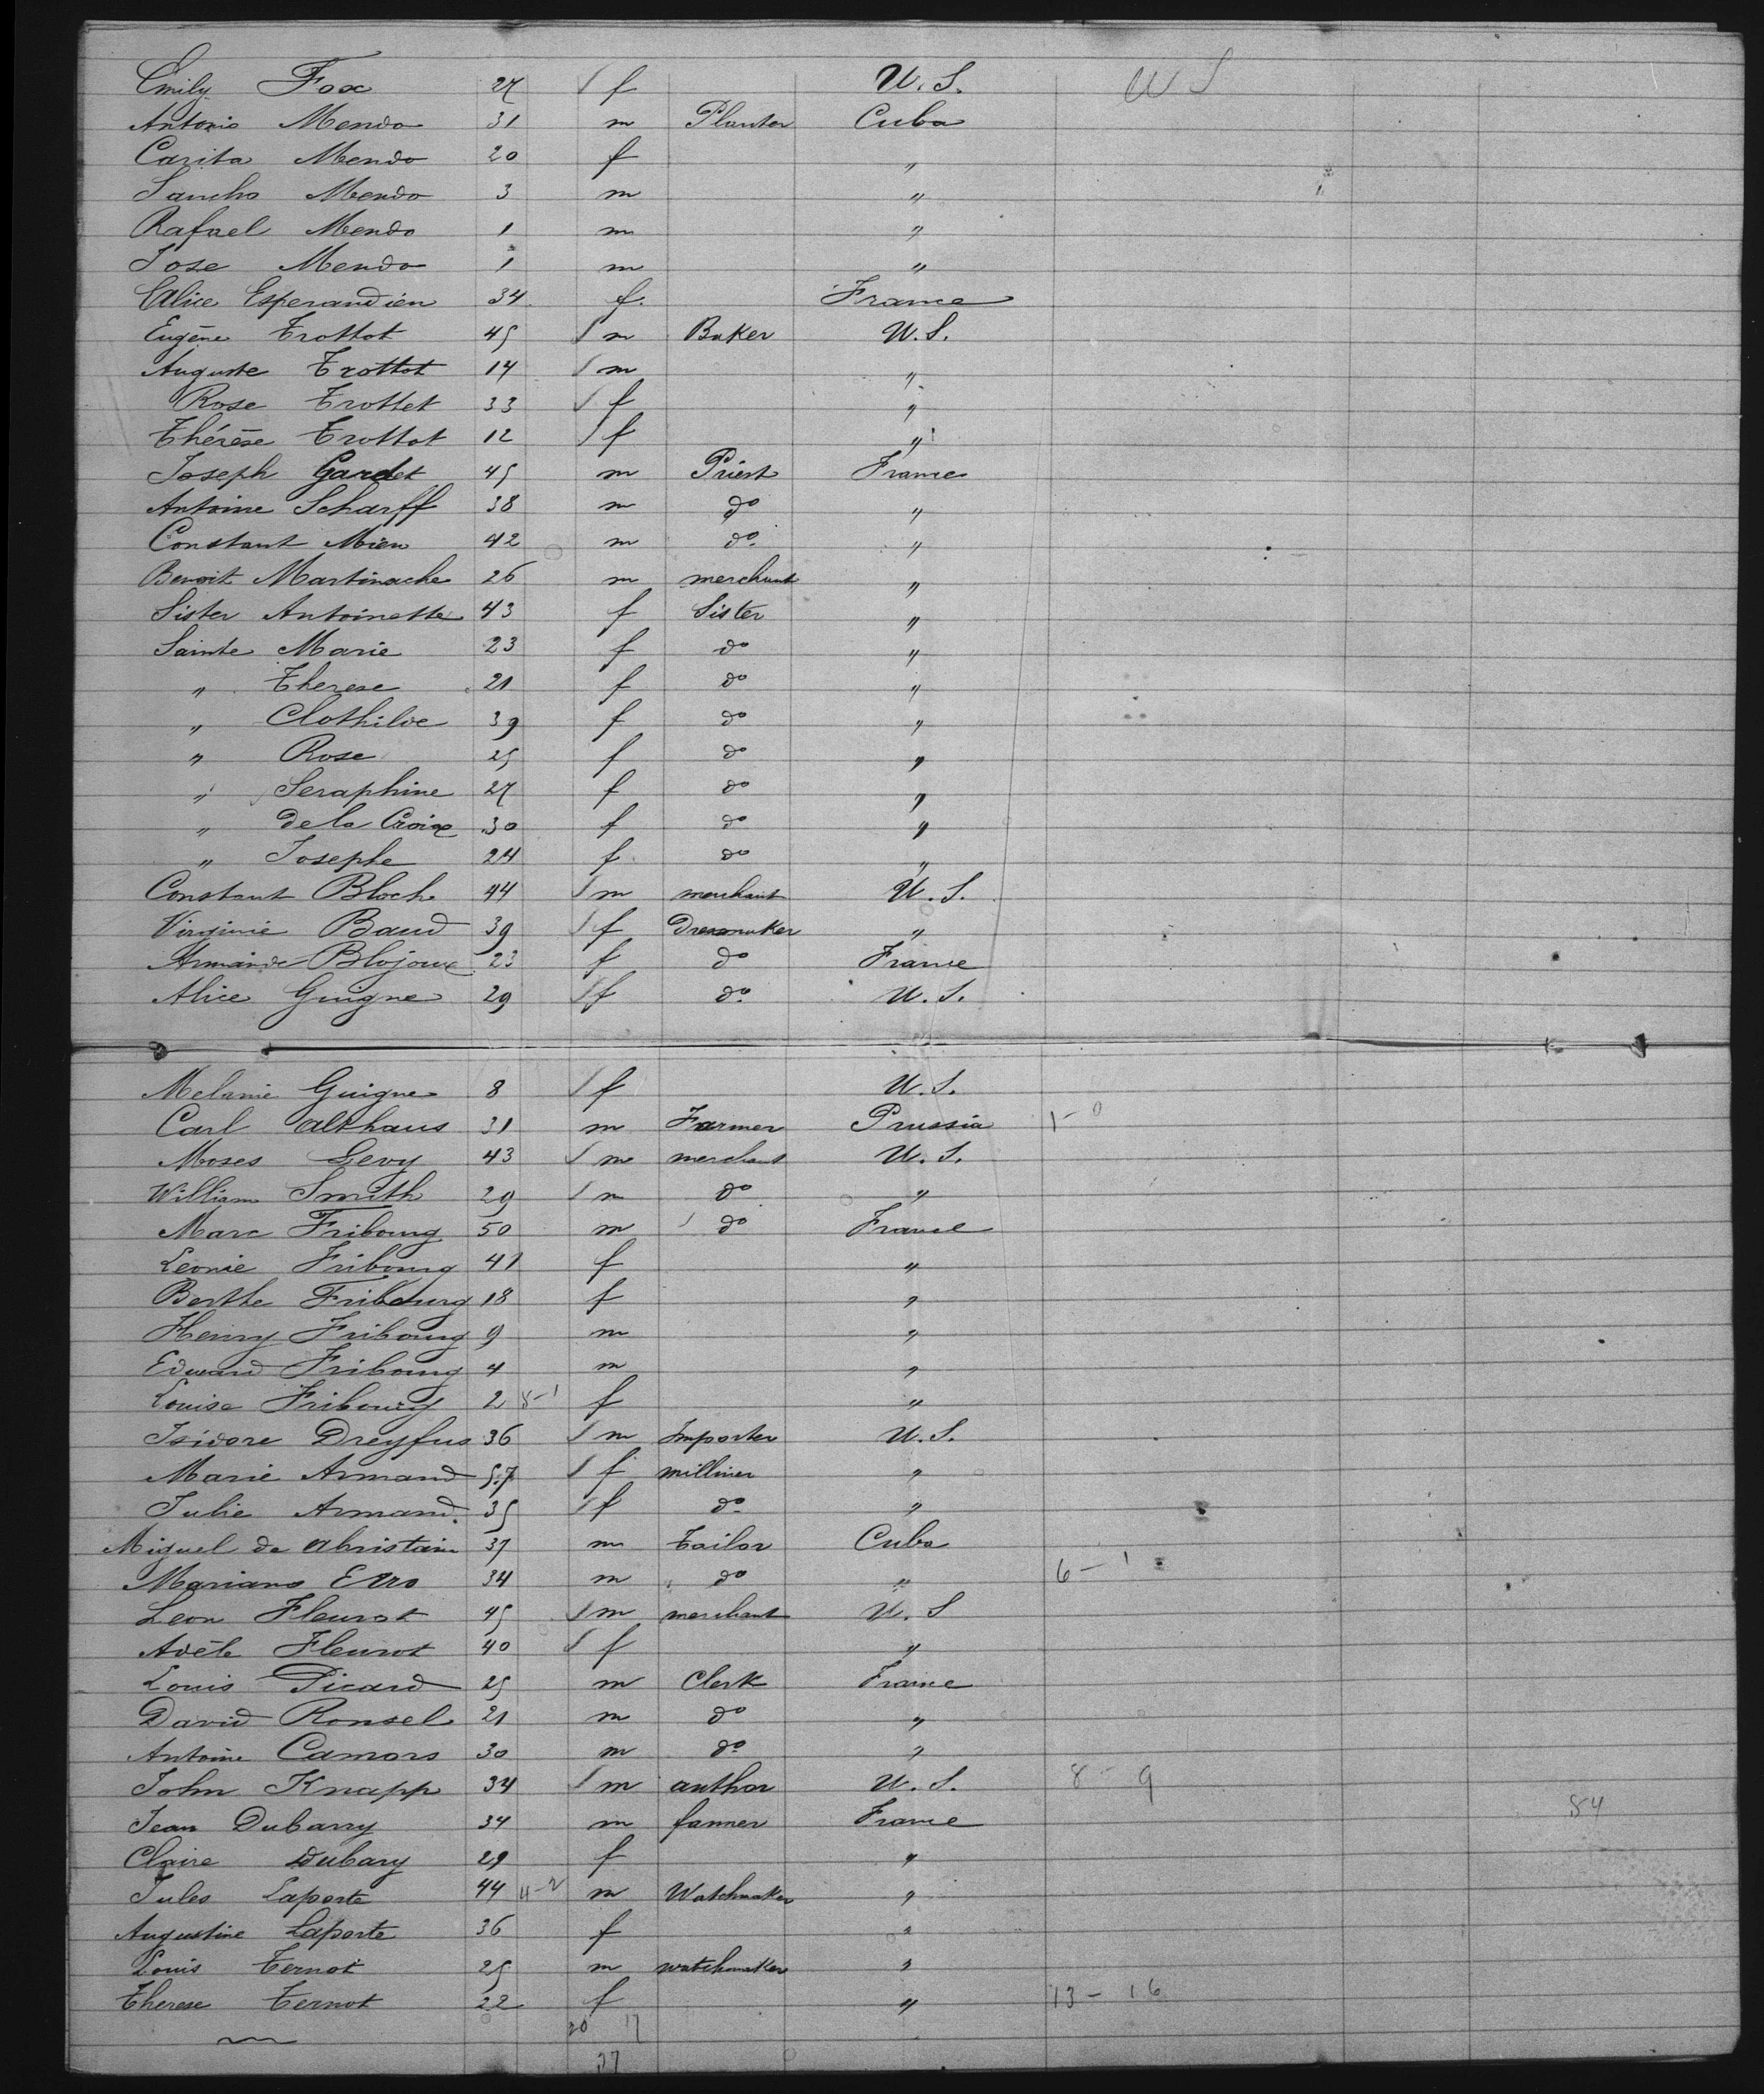 Emily Fox 27 f U.S. U S
Antonio Mendo 31 m Planter Cuba
Carita Mendo 20 f "
Sancho Mendo 3 m "
Rafael Mendo 1 m "
Jose Mendo 1 m "
Alice Esperandien 34 f. France
Eugène Trottot 45 m Baker U.S.
Auguste Trottot 14 m "
Rose Trottet 33 f "
Thérèse Trottot 12 f "
Joseph Gardet 45 m Priest France
Antoine Scharff 38 m do "
Constant Mien 42 m do "
Benoit Martinache 26 m merchant "
Sister Antoinette 43 f Sister "
Sainte Marie 23 f do "
" Therese 21 f do "
" Clothilde 39 f do "
" Rose 25 f do "
" Seraphine 27 f do "
" de la Croix 30 f do "
" Josephe 24 f do "
Constant Bloch 44 m merchant U.S.
Virginie Baud 39 f Dressmaker "
Armande 23 f do France
Alice Guigne 29 f do U.S.
Melanie Guigne 8 f U.S.
Carl Althaus 31 m Farmer Prussia 1 - 0
Moses Levy 43 m merchant U.S.
William Smith 29 m do "
Marc Fribourg 50 m do France
Leonie Fribourg 41 f "
Berthe Fribourg 18 f "
Henry Fribourg 9 m "
Edward Fribourg 4 m "
Louise Fribourg 2 8-1 f "
Isidore Dreyfus 36 m Importer U.S.
Marie Armand 57 f milliner "
Julie Armand. 35 f do "
Miguel de Abristain 37 m Tailor Cuba
Mariano Erro 34 m do " 6 - 1
Leon Fleurot 45 m merchant U.S
Adèle Fleurot 40 f "
Louis Picard 25 m Clerk France
David Ronsel 21 m do "
Antoine Camors 30 m do "
John Knapp 34 m author U.S. 8 - 9
Jean Dubarry 34 m farmer France 54
Claire Dubary 29 f "
Jules Laporte 44 4-2 m Watchmaker "
Augustine Laporte 36 f "
Louis Ternot 25 m watchmaker "
Therese Ternot 22 f " 13 - 16
20 17
37